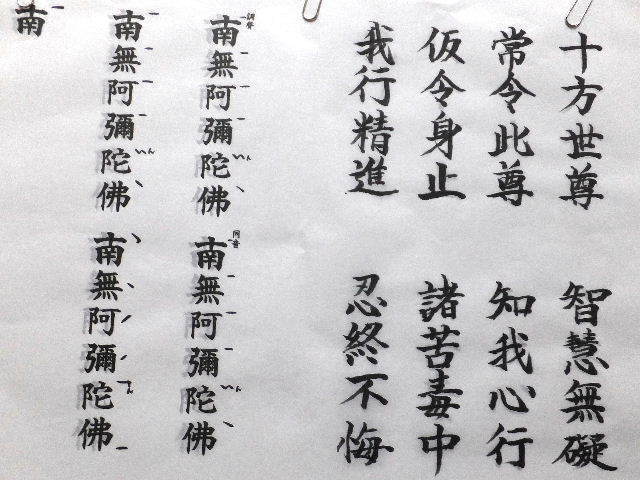 十方世尊 智慧無礙
常令此尊 知我心行
仮令身止 諸苦毒中
我行精進 忍終不悔
南無阿彌陀佛 南無阿彌陀佛
南無阿彌陀佛 南無阿彌陀佛
南